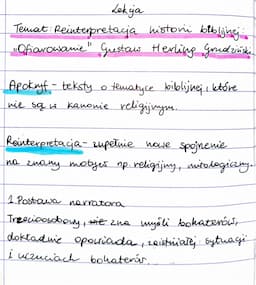 Lekcja
Temat Reinterpretacja historii biblijnej.
"Ofiarowanie" Gustaw Herling Grudziński
Apokryf - teksty o tematyce biblijnej, które
nie są w kanonie religijnym.
Reinterpretacja - zupełnie nowe spojrzenie
na znany motyw np. religijny, mitologiczny.
1. Postawa narratora
Trzecioosobowy, zna myśli bohaterów,
dokładnie opowiada, o sytuacji
i uczuciach bohaterów.